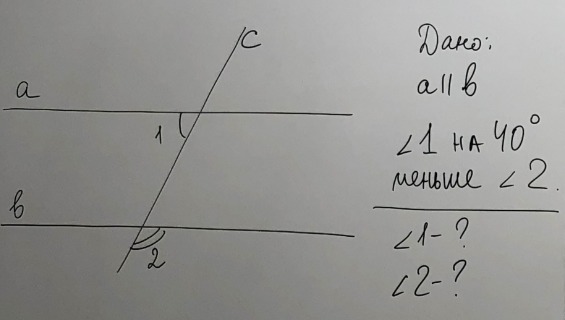 c
a
1
b
2
Дано:
a || b
∠1 на 40°
меньше ∠2.
∠1-?
∠2-?